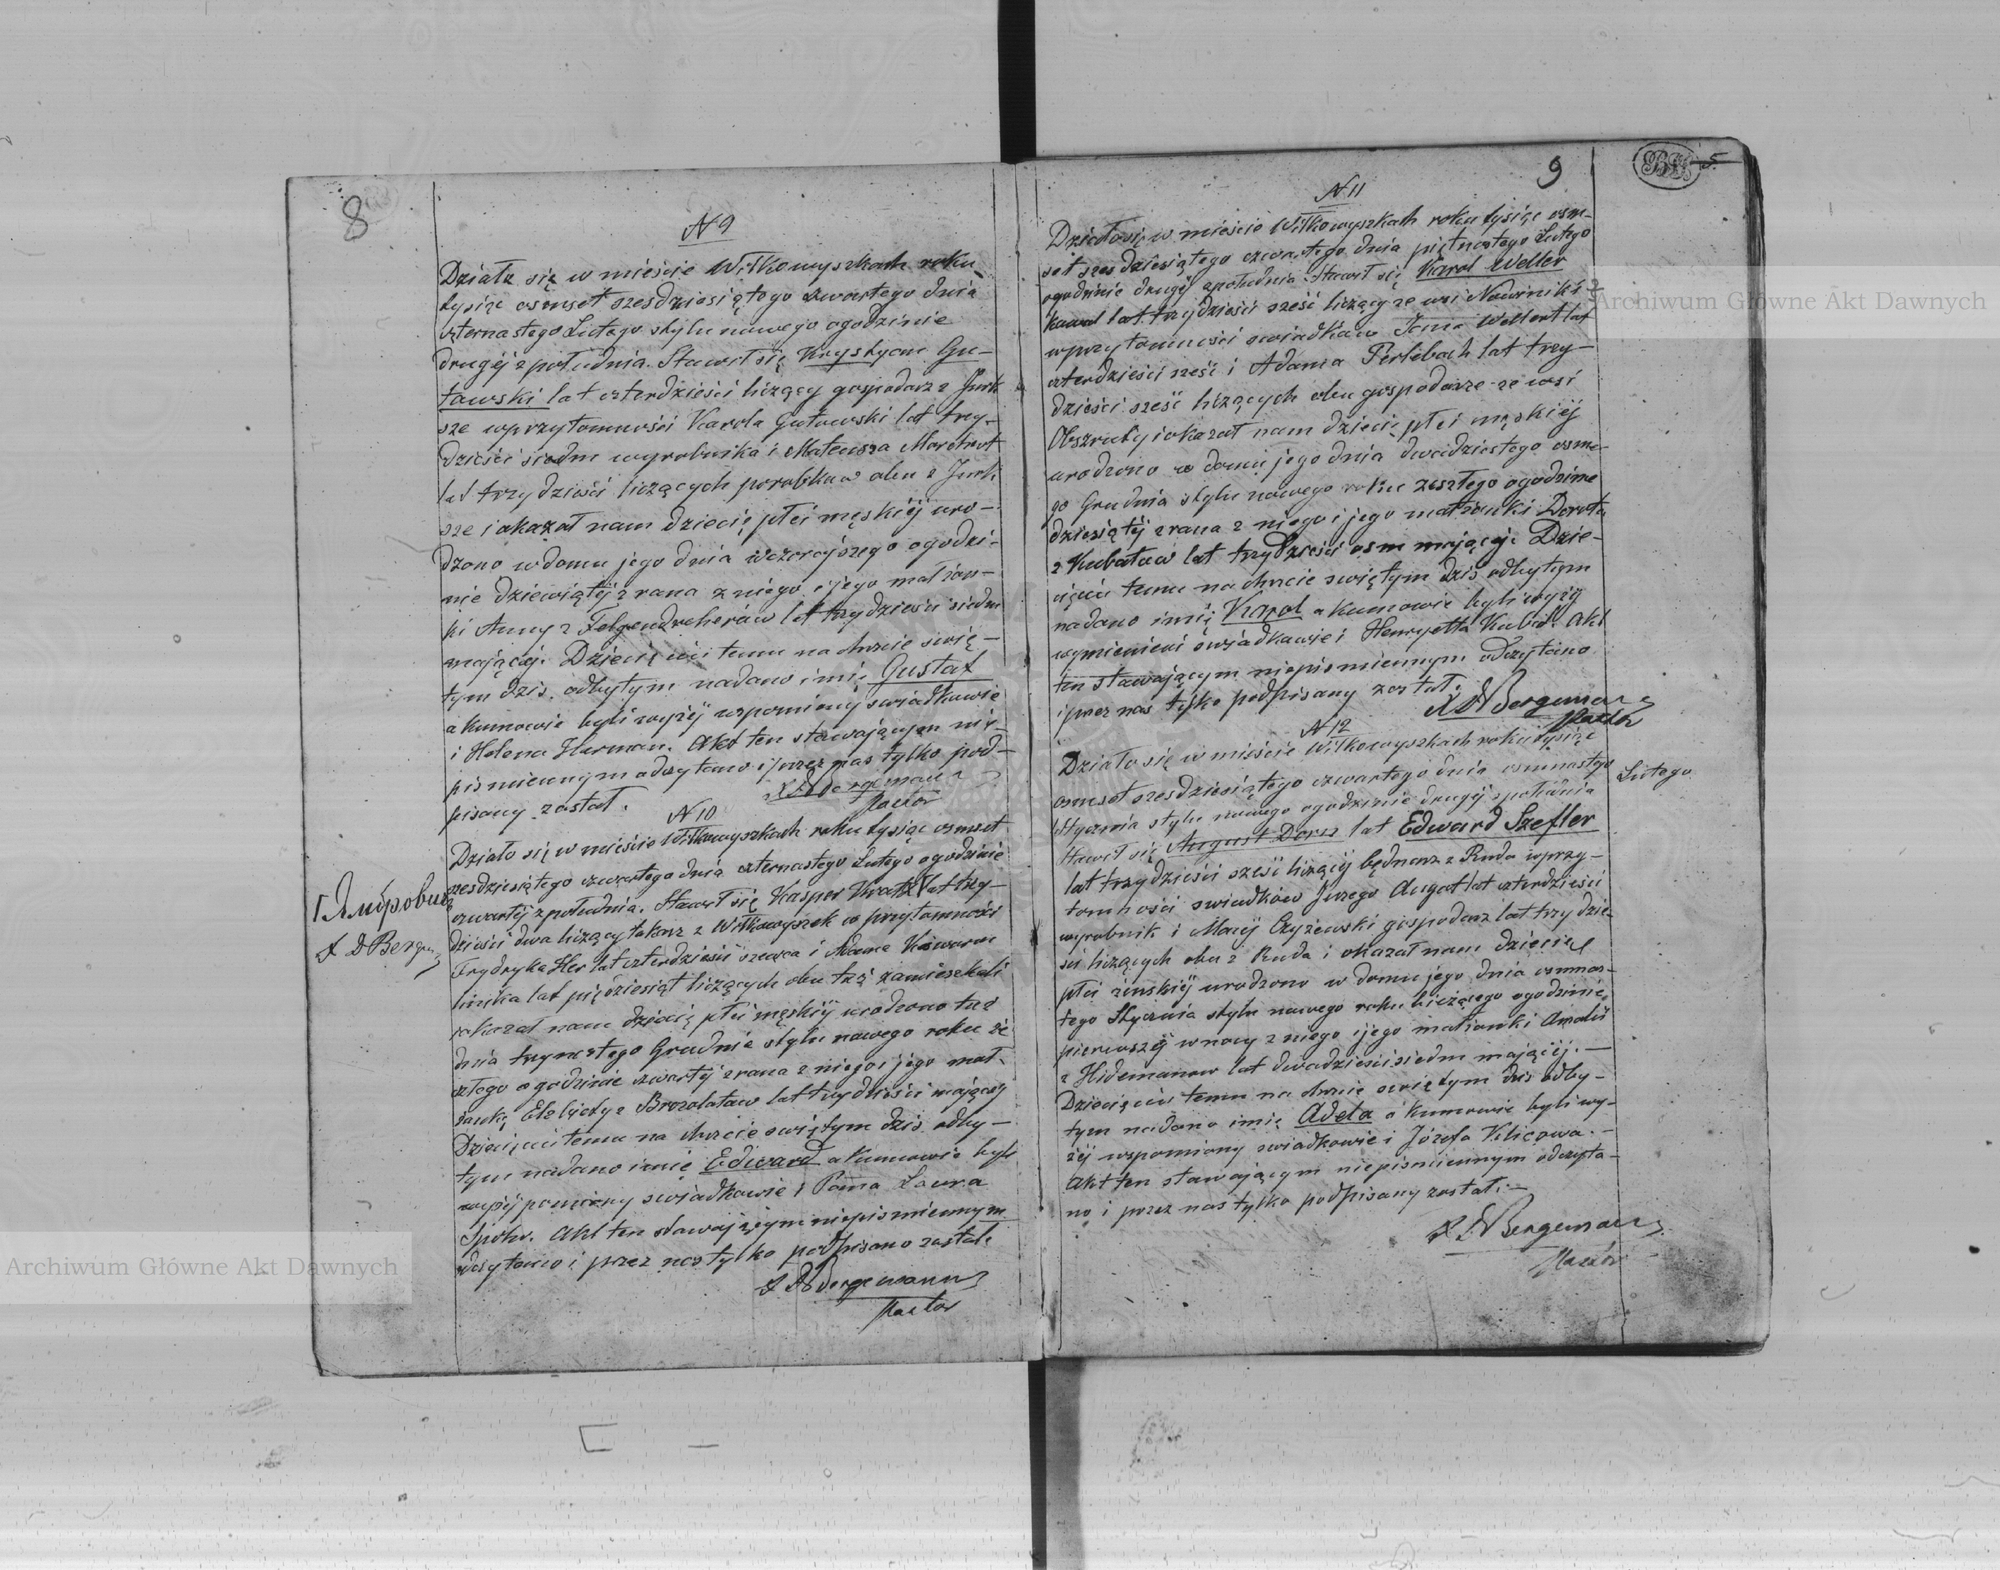 8
N 9
Działo się w mieście Wiłkowyszkach roku
tysiąc osmset szesdziesiątego czwartego dnia
czternastego Lutego stylu nowego ogodzinie
drugéj zpołudnia. Stawił się Krystyan Gu-
tawski lat czterdzieści liczący gospodarz z Jurk
sze wprzytomności Karola Gutowski lat trzy-
dzieści siedm wyrobnika i Mateusza
lat trzydzieści liczących porobków obu z Jurk
sze i okazał nam dziecię płci męskiéj uro-
dzone wdomu jego dnia wczorajszego ogodzi-
nie dziewiątéj zrana z niego i jego małżon-
ki Anny z Felgendreherów lat trzydzieści siedm
mającéj. Dziecięciu temu na chrzcie swię-
tym dzis odbytym nadano imię Gustaf
a kumowie byli wyżéj wspomiony swiadkowie
i Helena Herman. Akt ten stawającym nie-
pismiennym odczytano i przez nas tylko pod-
pisany został.
Bergeman
Pastor
N 10
Działo się w mieście Wiłkowyszkach roku tysiąc osmset
szesdziesiątego czwartego dnia czternastego Lutego ogodzinie
czwartéj zpołudnia. Stawił się Kasper Kratz lat trzy-
dzieści dwa liczący tokarz z Wiłkowyszek w przytomności
Frydryka Her lat czterdzieści szewca i Adama
lat piędziesiąt liczących obu tu zamieszkali
iokazał nam dziecię płci męskiéj urodzone tuż
dnia trzynastego Grudnia stylu nowego roku ze
szłego ogodzinie czwartéj zrana z niego i jego mał-
żonki Elzbiety z lat trzydzieści mającéj
Dziecięciu temu na chrzcie swiętym dzis odby-
tym nadano imie Edward a kumowie byli
wyżéj pomieniony swiadkowie i Panna Laura
Akt ten stawającym niepismiennym
odczytano i przez nas tylko podpisano został.
Bergemann
Pastor
9
5
N 11
Działo się w mieście Wiłkowyszkach roku tysiąc osm-
set szesdziesiątego czwartego dnia piętnastego Lutego
ogodzinie drugéj zpołudnia stawił się Karol Weller
kowal lat trzydzieści sześć liczący ze wsi Nowiniki
wprzytomności swiadków Jana Wellert lat
czterdzieści sześć i Adama Perlebach lat trzy-
dzieści sześć liczących obu gospodarze ze wsi
Obszruty i okazał nam dziecię płci męskiéj
urodzone w domu jego dnia dwudziestego osme-
go Grudnia stylu nowego roku zeszłego ogodzinie
dziesiątéj zrana z niego i jego małżonki Dorota
z Kubatów lat trzydzieści osm mającéj. Dzie-
cięciu temu na chrzcie swiętym dzis odbytym
nadano imię Karol a kumowie byli wyżéj
wymienieni swiadkowie i Henryetta Akt
ten stawającym niepismiennym odczytano
i przez nas tylko podpisany został.
Bergeman
Pastor
N 12
Działo się w mieście Wiłkowyszkach roku tysiąc
osmset szesdziesiątego czwartego dnia osmnastego
Lutego
Stycznia stylu nowego ogodzinie drugéj zpołudnia
stawił się August Dorn lat Edward Szefler
lat trzydzieści sześć liczący będnarz z Ruda wprzy-
tomności swiadków Jurzego August lat czterdzieści
wyrobnik i Maciéj Czyżewski gospodarz lat trzydzie-
sci liczących obu z Ruda i okazał nam dziecię
płci żeńskiéj urodzone w domu jego dnia osmnas-
tego Stycznia stylu nowego roku bieżącego ogodzinie
pierwszéj w nocy z niego i jego małżonki Amalii
z Hidemanow lat dwadzieścisiedm mającéj.
Dziecięciu temu na chrzcie swiętym dzis odby-
tym nadano imię Adela a kumowie byli wy-
żéj wspomiony swiadkowie i Józefa Klicowa.
Akt ten stawającym niepismiennym odczyta-
no i przez nas tylko podpisany został.
Bergeman
Pastor
Archiwum Główne Akt Dawnych
Archiwum Główne Akt Dawnych